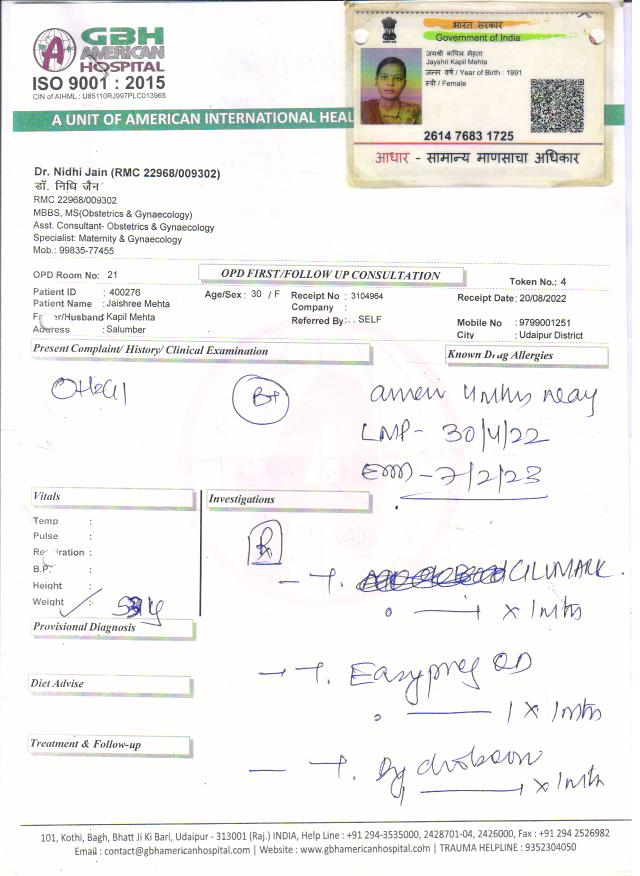 GBH
AMERICAN
HOSPITAL
ISO 9001 : 2015
CIN of AIHML : U85110RJ997PLC013965
भारत सरकार
Government of India
जयश्री कपिल मेहता
Jayshri Kapil Mehta
जन्म वर्ष / Year of Birth : 1991
स्त्री / Female
2614 7683 1725
आधार - सामान्य माणसाचा अधिकार
A UNIT OF AMERICAN INTERNATIONAL HEAL
Dr. Nidhi Jain (RMC 22968/009302)
डॉ. निधि जैन
RMC 22968/009302
MBBS, MS(Obstetrics & Gynaecology)
Asst. Consultant- Obstetrics & Gynaecology
Specialist: Maternity & Gynaecology
Mob.: 99835-77455
OPD Room No: 21
OPD FIRST/FOLLOW UP CONSULTATION
Token No.: 4
Patient ID : 400276
Age/Sex : 30 / F
Receipt No : 3104964
Receipt Date: 20/08/2022
Patient Name : Jaishree Mehta
Company :
er/Husband Kapil Mehta
Referred By: . . SELF
Mobile No : 9799001251
Address : Salumber
City : Udaipur District
Present Complaint/ History/ Clinical Examination
Known Drug Allergies
B+
LMP- 30/4/22
- 7/2/23
Vitals
Investigations
Temp :
Pulse :
Respiration :
B.P. :
Height :
Weight :
Rx
- T. x 1mth
Provisional Diagnosis
- T. Easypreg OD
1 x 1mth
Diet Advise
Treatment & Follow-up
- T. x 1mth
101, Kothi, Bagh, Bhatt Ji Ki Bari, Udaipur - 313001 (Raj.) INDIA, Help Line : +91 294-3535000, 2428701-04, 2426000, Fax : +91 294 2526982
Email : contact@gbhamericanhospital.com | Website : www.gbhamericanhospital.com | TRAUMA HELPLINE : 9352304050